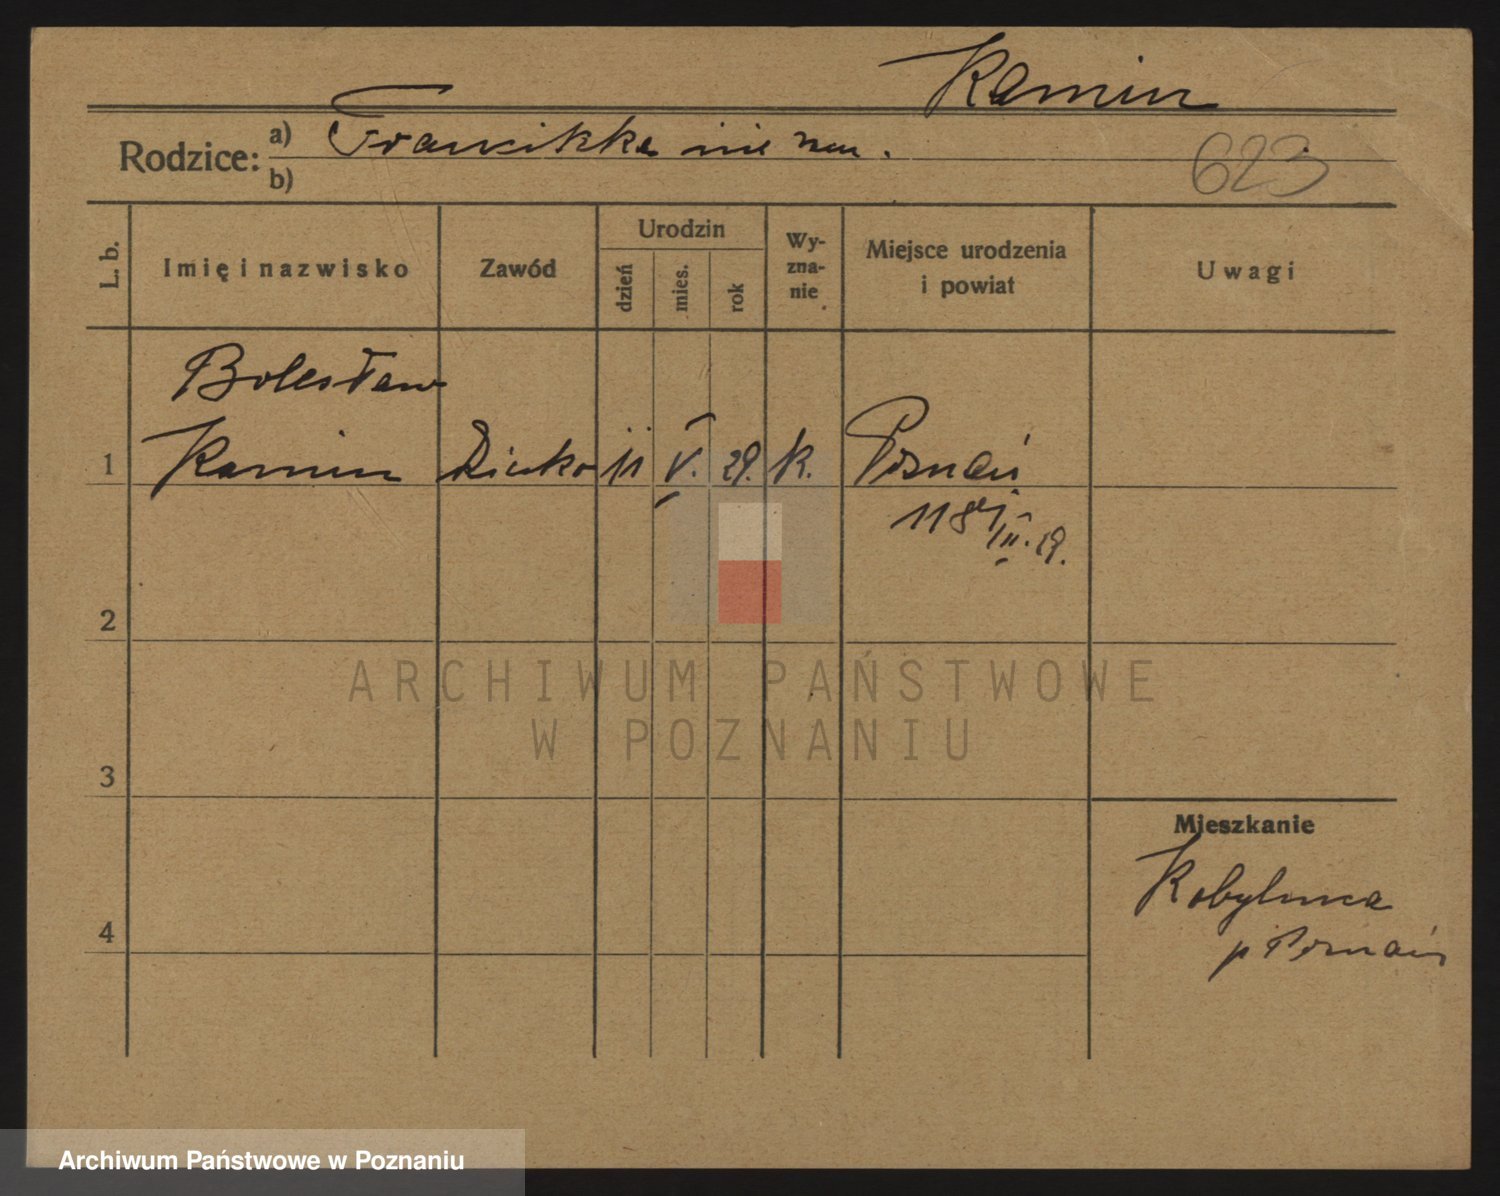 Kamin
Rodzice: a) Franciszka nie zam.
b)
623
L. b.
Imię i nazwisko
Zawód
Urodzin
dzień
mies.
rok
Wy-
zna-
nie
Miejsce urodzenia
i powiat
Uwagi
Bolesław
1 Kamin Dziecko 11 V. 29. k. Poznań
III. 29.
2
3
4
Mieszkanie
Kobylnica
p Poznań
ARCHIWUM PAŃSTWOWE
W POZNANIU
Archiwum Państwowe w Poznaniu